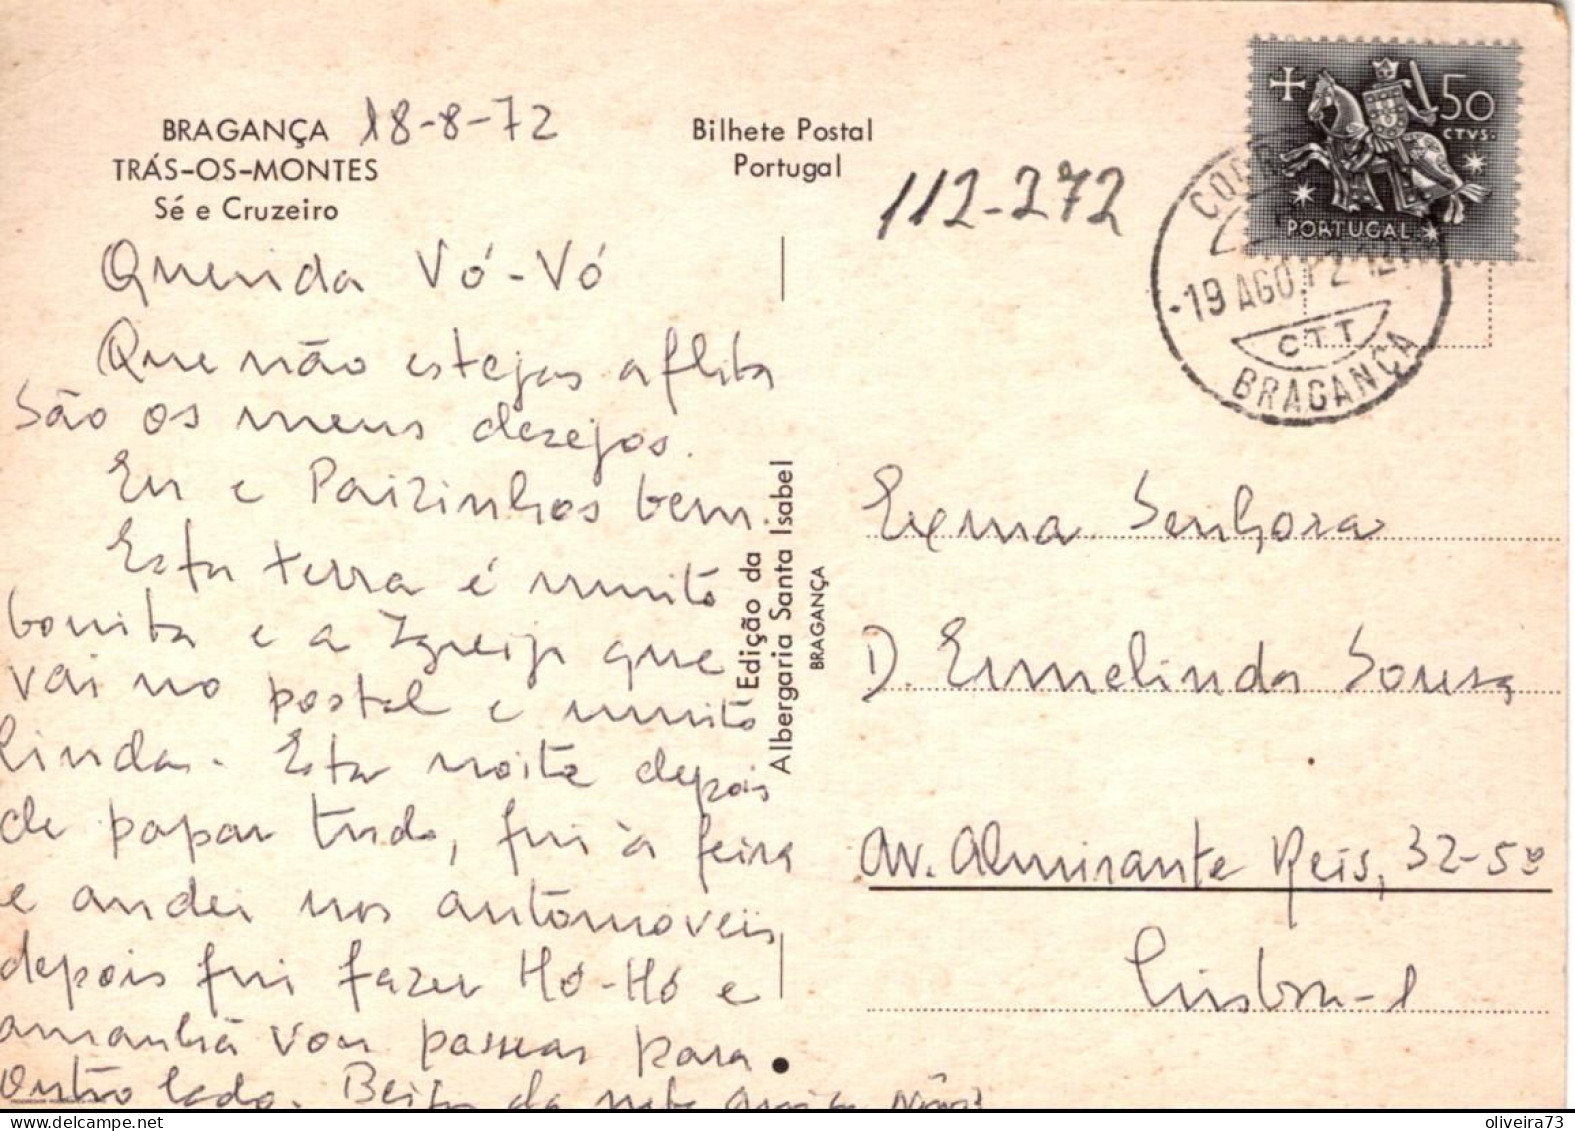 BRAGANÇA 18-8-72
TRÁS-OS-MONTES
Sé e Cruzeiro
Bilhete Postal
Portugal
112-272
50
CTVS.
PORTUGAL
-19 AGO.72
CTT
BRAGANÇA
Querida Vó-Vó
Que não estejas aflita
São os meus desejos.
Eu e Paizinhos bem.
Esta terra é muito
bonita e a Igreja que
vai no postal e muito
linda. Esta noite depois
de papar tudo, fui à feira
e andei nos automoveis,
depois fui fazer Hó-Hó e
amanhã vou passear para
outro lado. Beijos da neta
Edição da
Albergaria Santa Isabel
BRAGANÇA
Exma Senhora
D. Ermelinda Sousa
Av. Almirante Reis, 32-5º
Lisboa-1
oliveira73